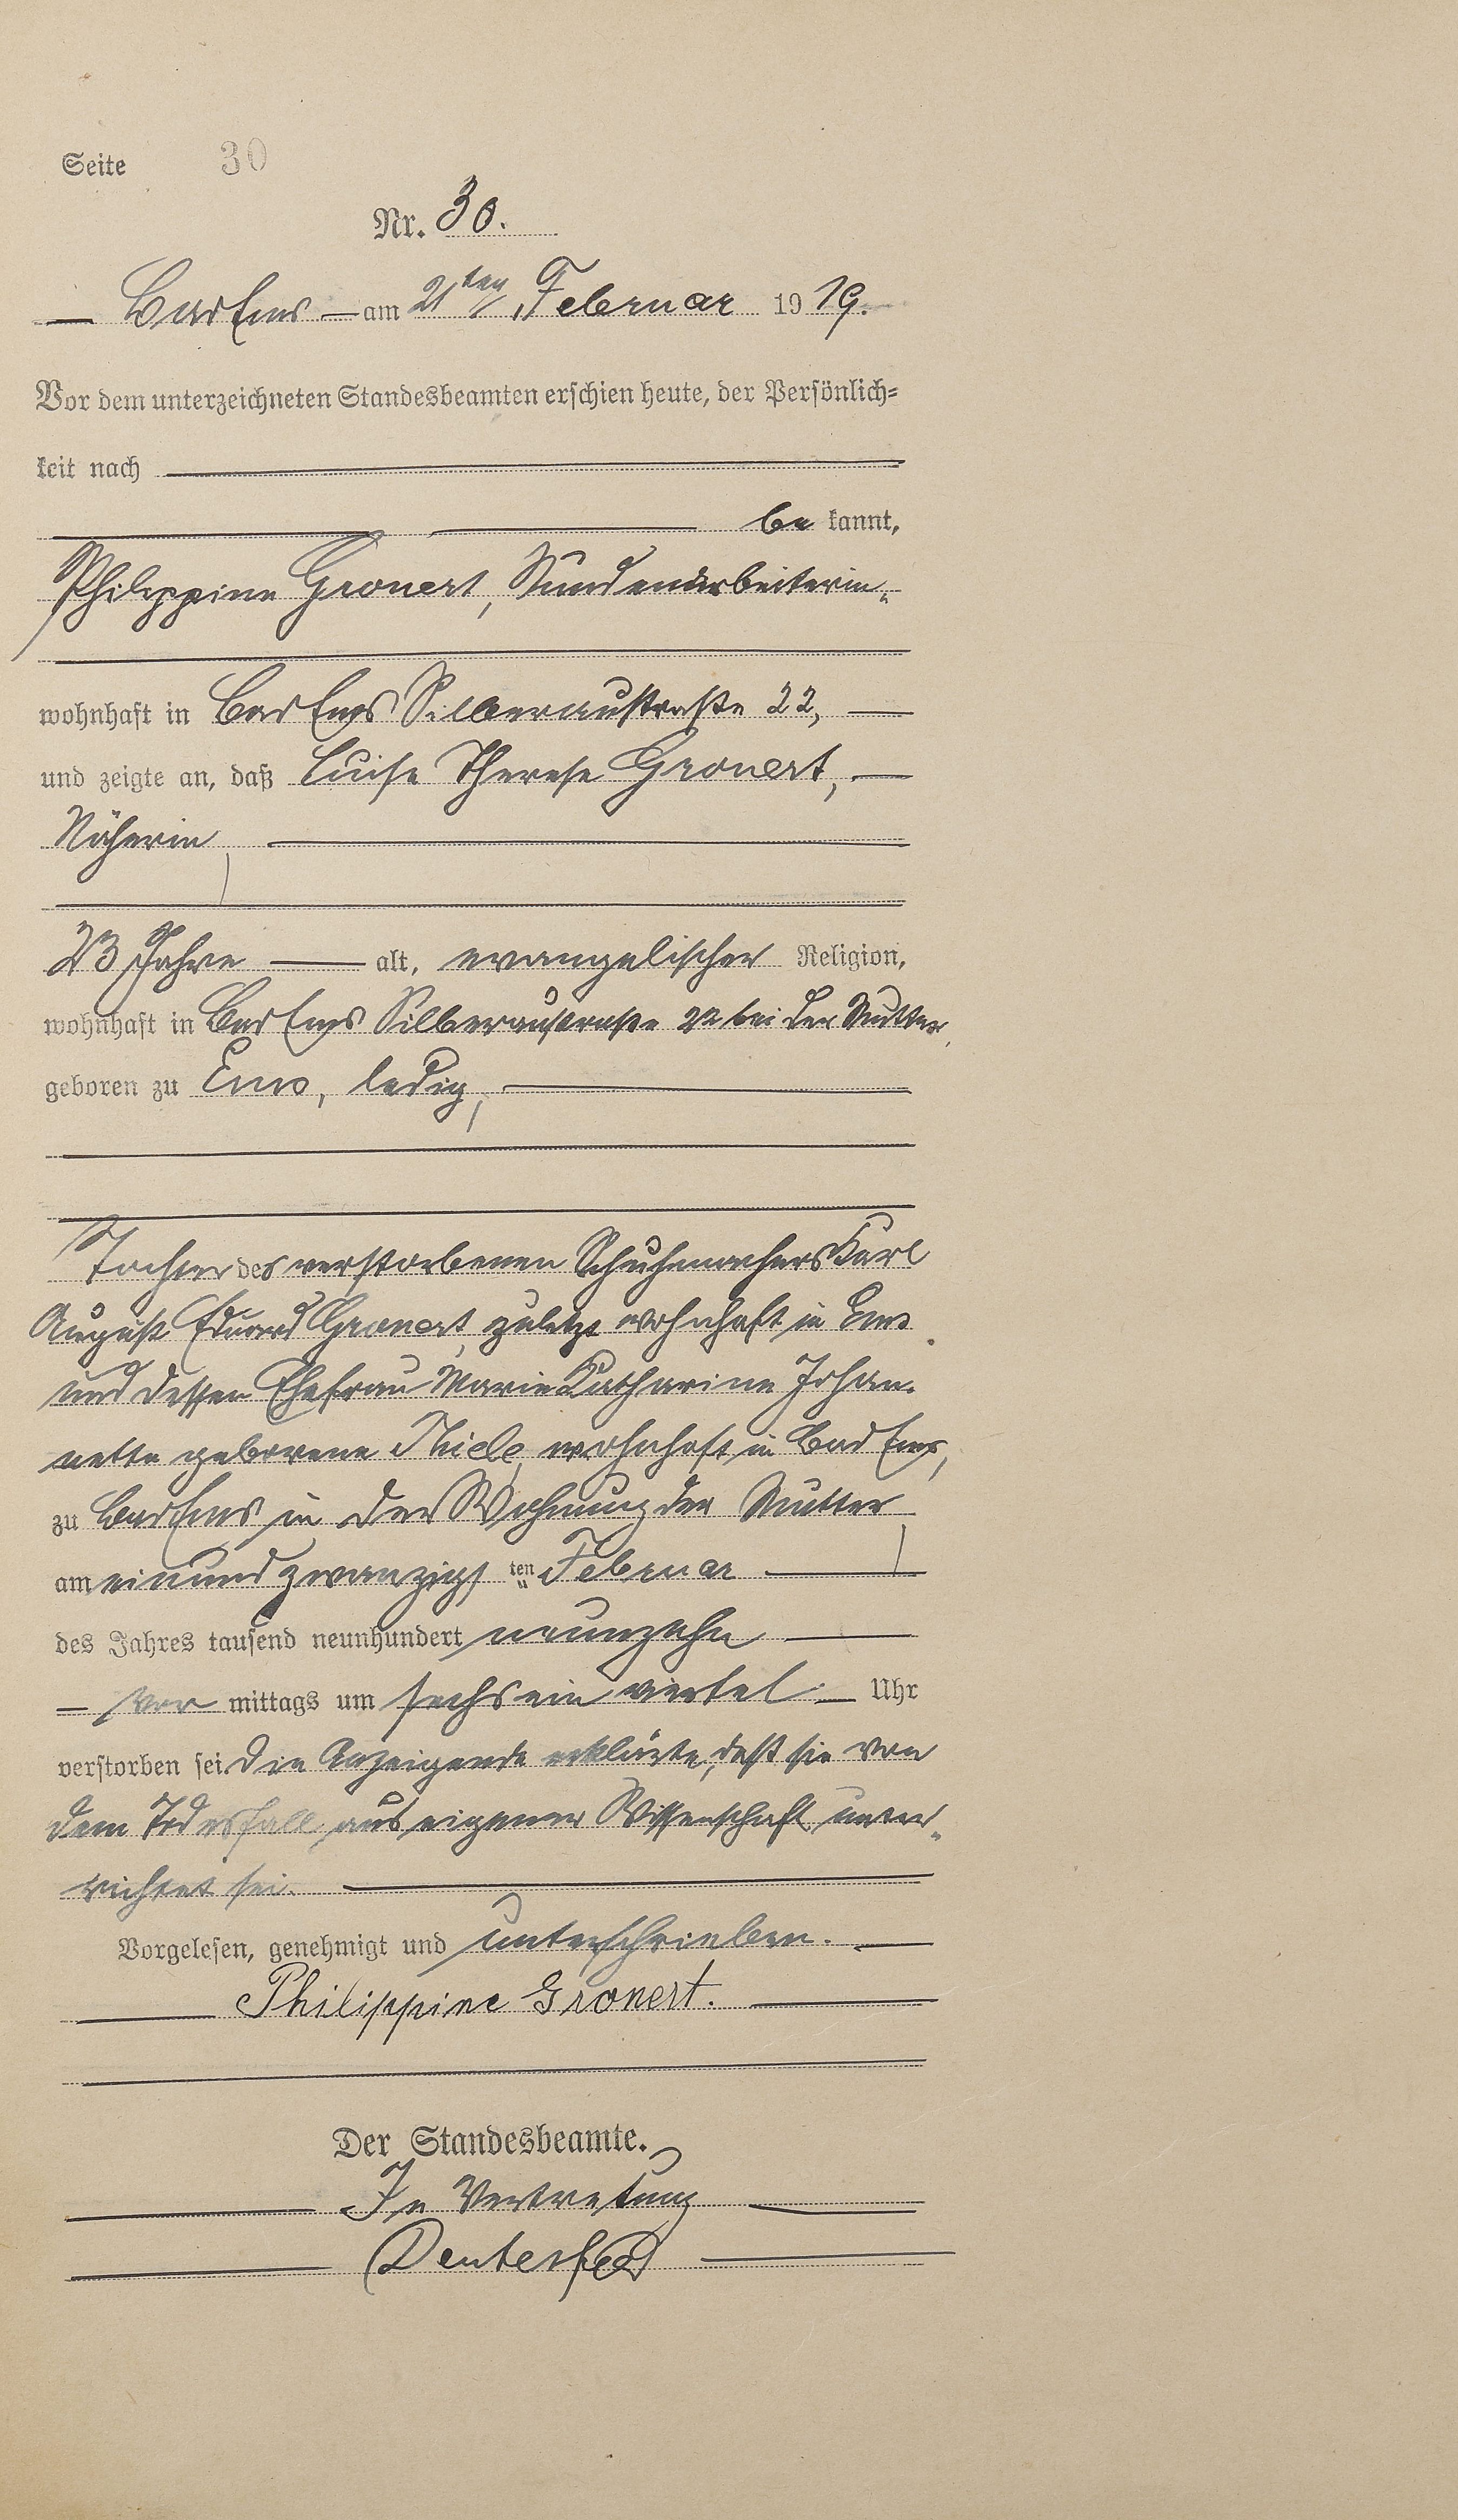 Seite 30
Nr. 30.
Bad Ems am 21ten Februar 1919.
Vor dem unterzeichneten Standesbeamten erschien heute, der Persönlich-
keit nach
be kannt,
Philippine Gronert,
wohnhaft in Bad Ems Silberaustraße 22,
und zeigte an, daß Luise Therese Gronert,
Näherin,
23 Jahre alt, evangelischer Religion,
wohnhaft in Bad Ems Silberaustraße 22 bei der Mutter,
geboren zu Ems, ledig,
Tochter des verstorbenen Schuhmachers Karl
August Eduard Gronert, zuletzt wohnhaft in Ems
und dessen Ehefrau Marie Katharine Johan-
nette geborene Thiele, wohnhaft in Bad Ems,
zu Bad Ems in der Wohnung der Mutter,
am einundzwanzigsten Februar
des Jahres tausend neunhundert neunzehn
vor mittags um sechs ein viertel Uhr
verstorben sei. Die Anzeigende erklärte, daß sie von
dem Todesfall aus eigener Wissenschaft unter-
richtet sei.
Vorgelesen, genehmigt und unterschrieben.
Philippine Gronert.
Der Standesbeamte.
In Vertretung